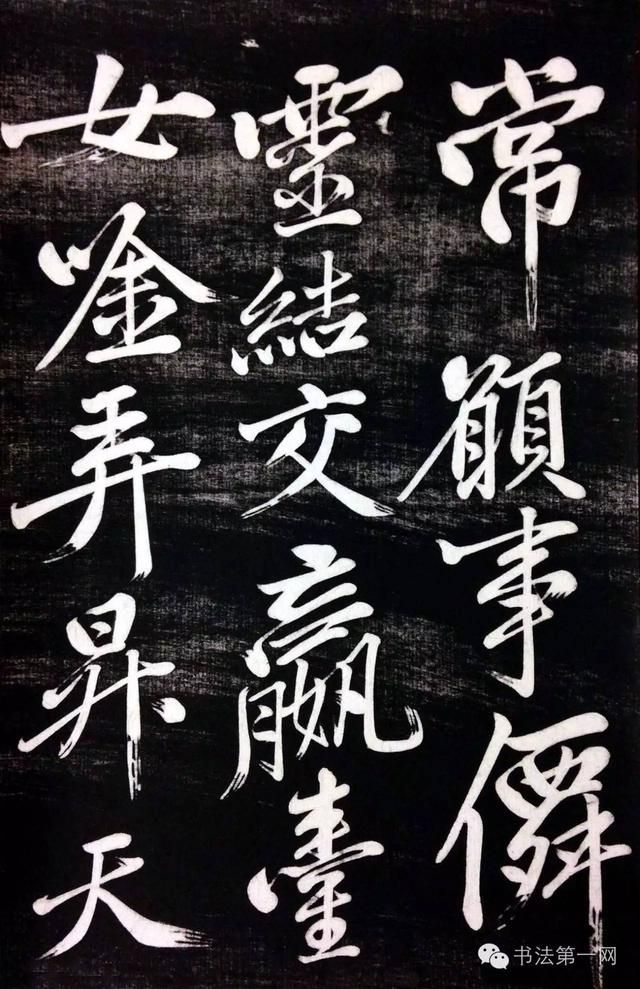 常願事僊
靈結交嬴臺
女唫弄昇天
书法第一网